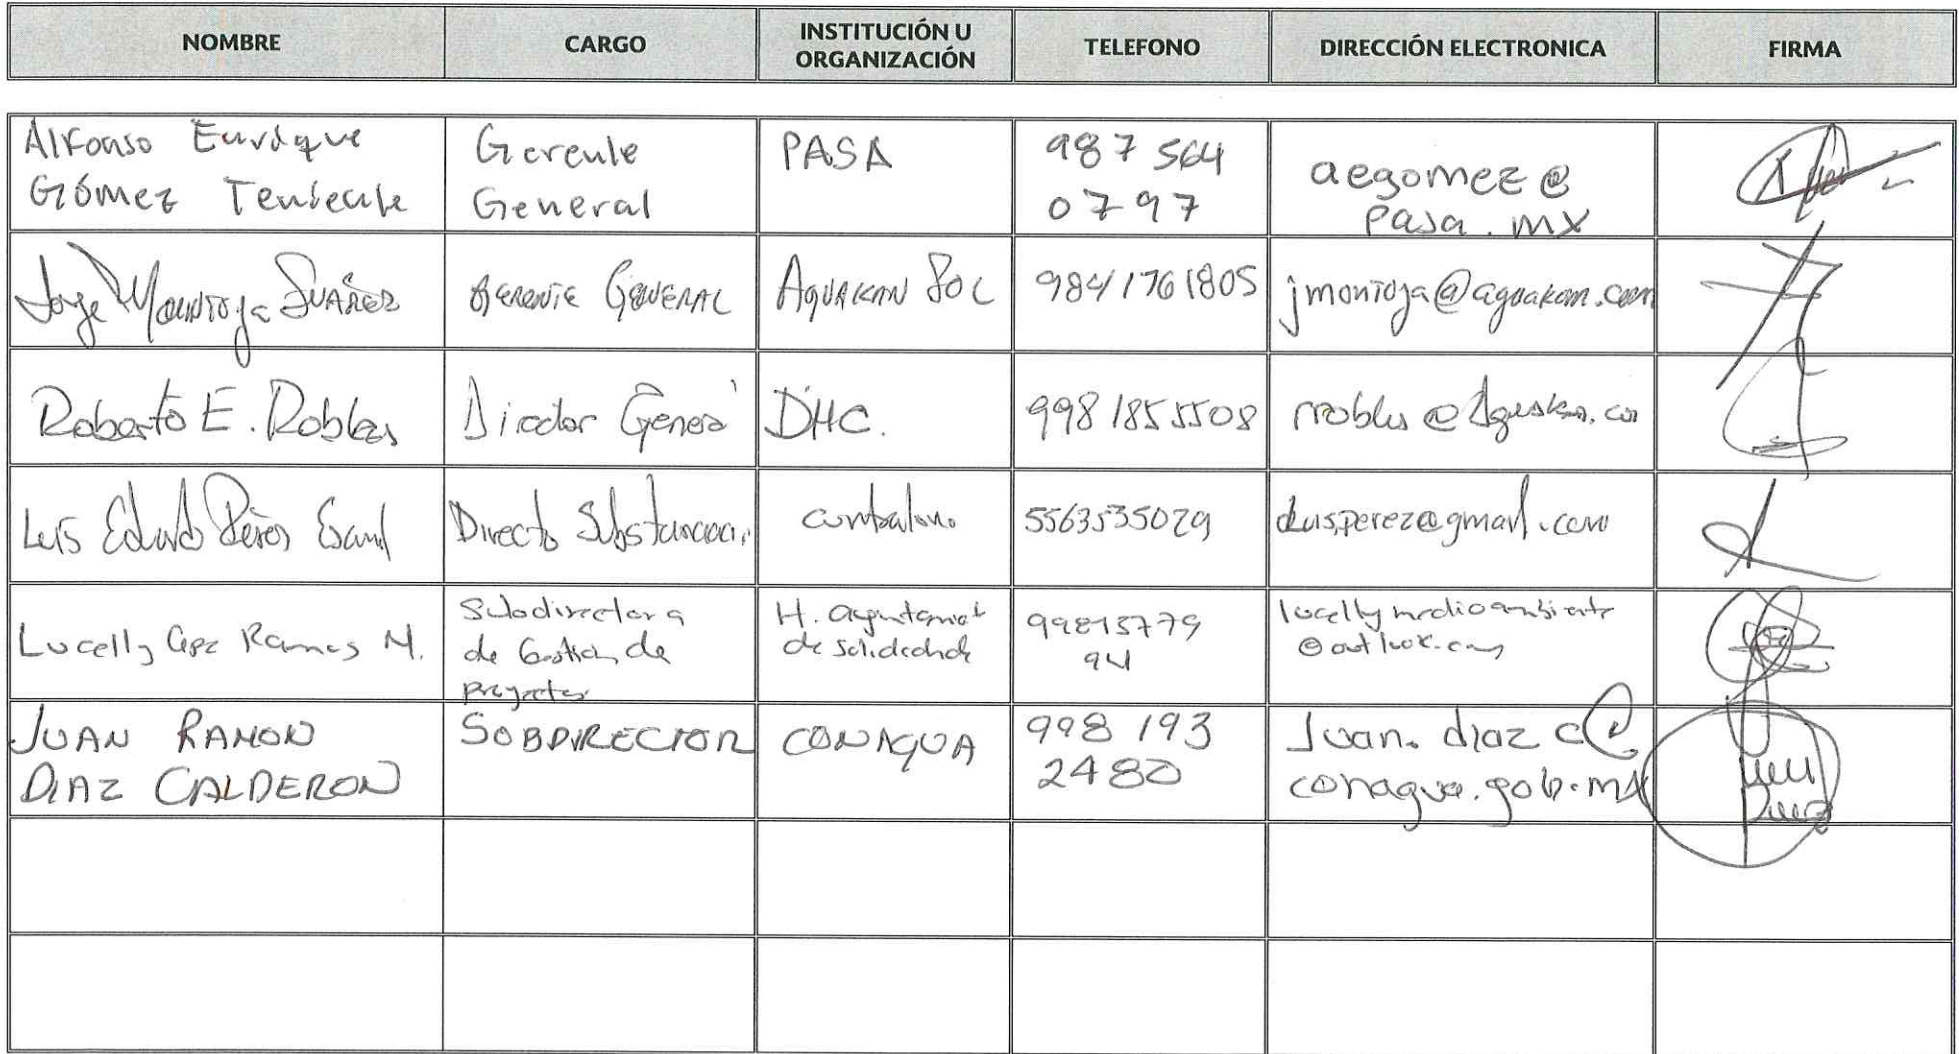 NOMBRE
CARGO
INSTITUCIÓN U
ORGANIZACIÓN
TELEFONO
DIRECCIÓN ELECTRONICA
FIRMA
Alfonso Enrique
Gómez Tentecule
Gerente
General
PASA
987 564
0797
aegomez@
pasa.mx
Jorge Montoya Suárez
GERENTE GENERAL
AGUAKAN SOL
984 1761805
jmontoya@aguakan.com
Roberto E. Robles
Director General
DHC.
998 1855508
rrobles@
Luis Eduardo Pérez
Directo
5563535029
Lucelly Ramos M.
Subdirectora
de Gestión de
proyectos
H. ayuntamient
de Solidaridad
99813779
94
lucellymedioambiente
@outlook.com
JUAN RAMON
DIAZ CALDERON
SUBDIRECTOR
CONAGUA
998 193
2480
Juan.diazc@
conagua.gob.mx